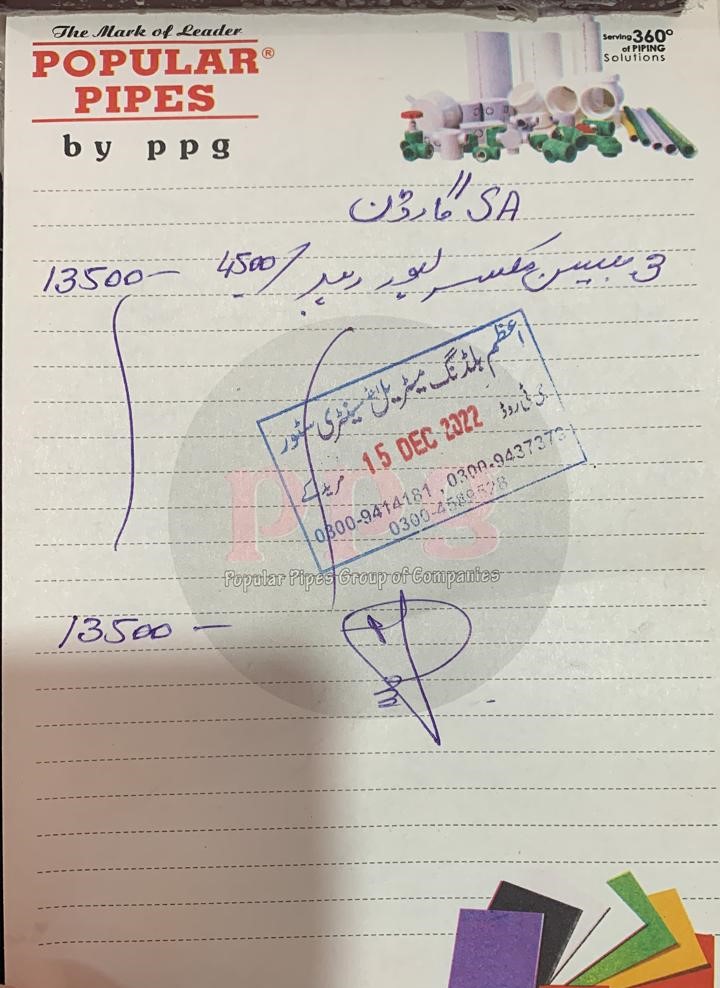 The Mark of Leader
POPULAR®
PIPES
by ppg
Serving 360°
of PIPING
Solutions
SA گارڈن "
3 بیسن مکسر لیور 4500/ 13500 —
اعظم بلڈنگ میٹریل اینڈ سینٹری سٹور
جی ٹی روڈ
15 DEC 2022
مریدکے
0300-9414181, 0300-9437373
0300-4589528
ppg
Popular Pipes Group of Companies
13500 —